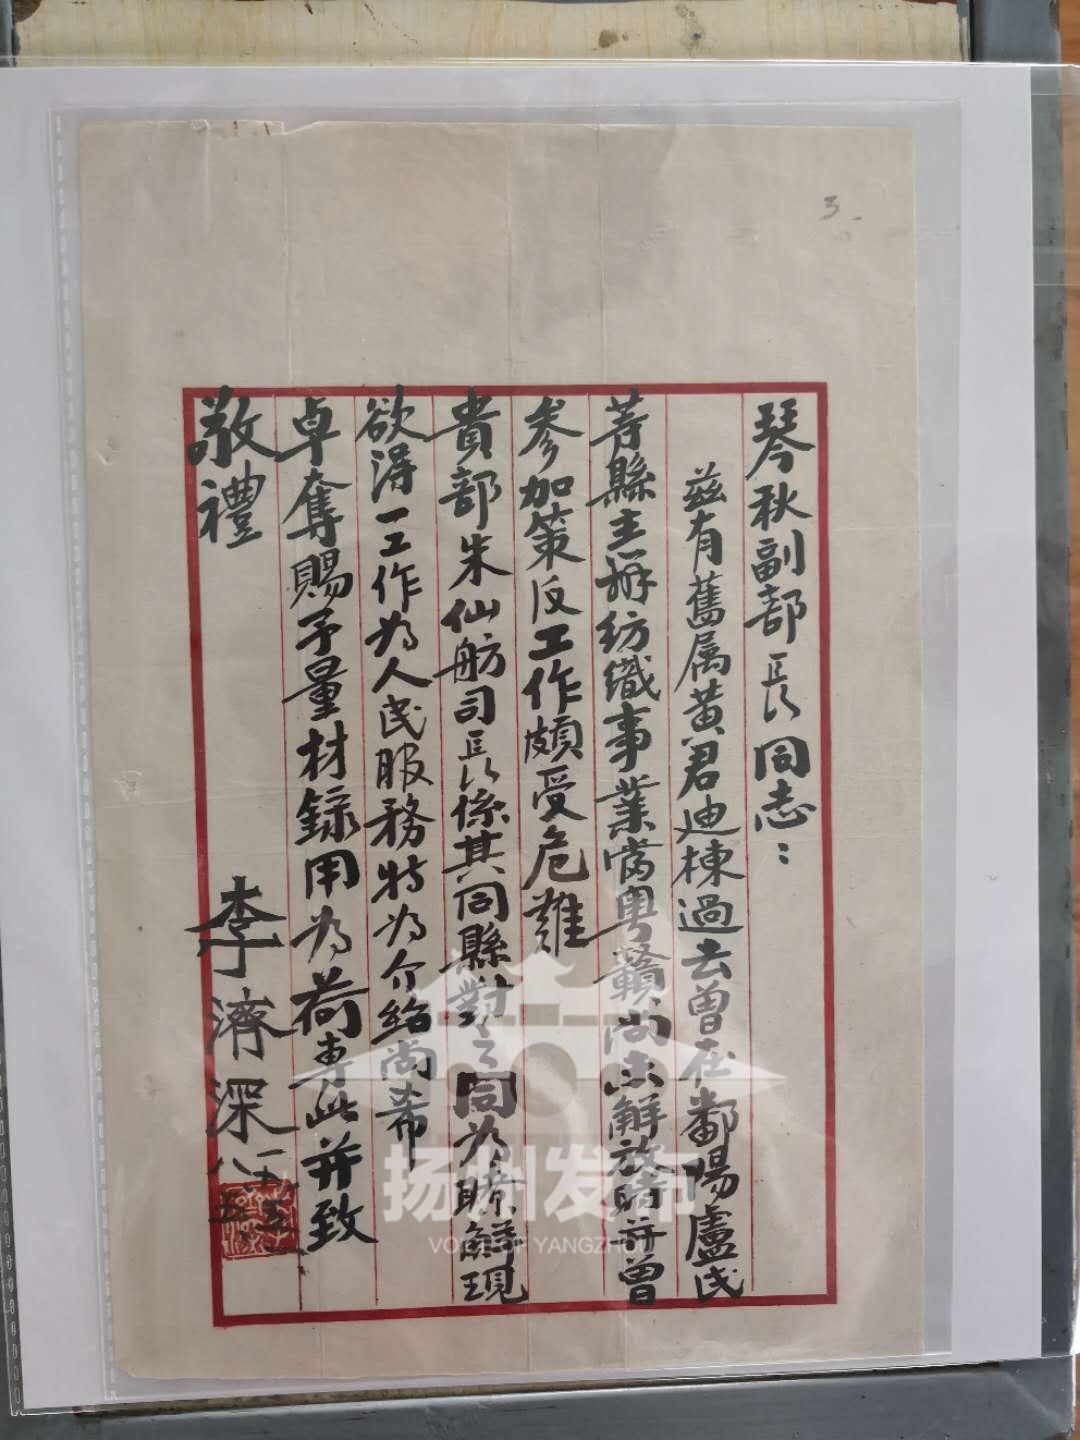 3
琴秋副部長同志：
兹有舊属黃君迪棟過去曾在鄱陽盧氏
等縣主辦紡織事業當粤贛尚未解放時并曾
參加策反工作頗受危難
貴部朱仙舫司長係其同縣對之同為瞭解現
欲得一工作為人民服務特為介紹尚希
卓奪賜予量材録用為荷專此并致
敬禮
李濟深
扬州发布
VOICE OF YANGZHOU